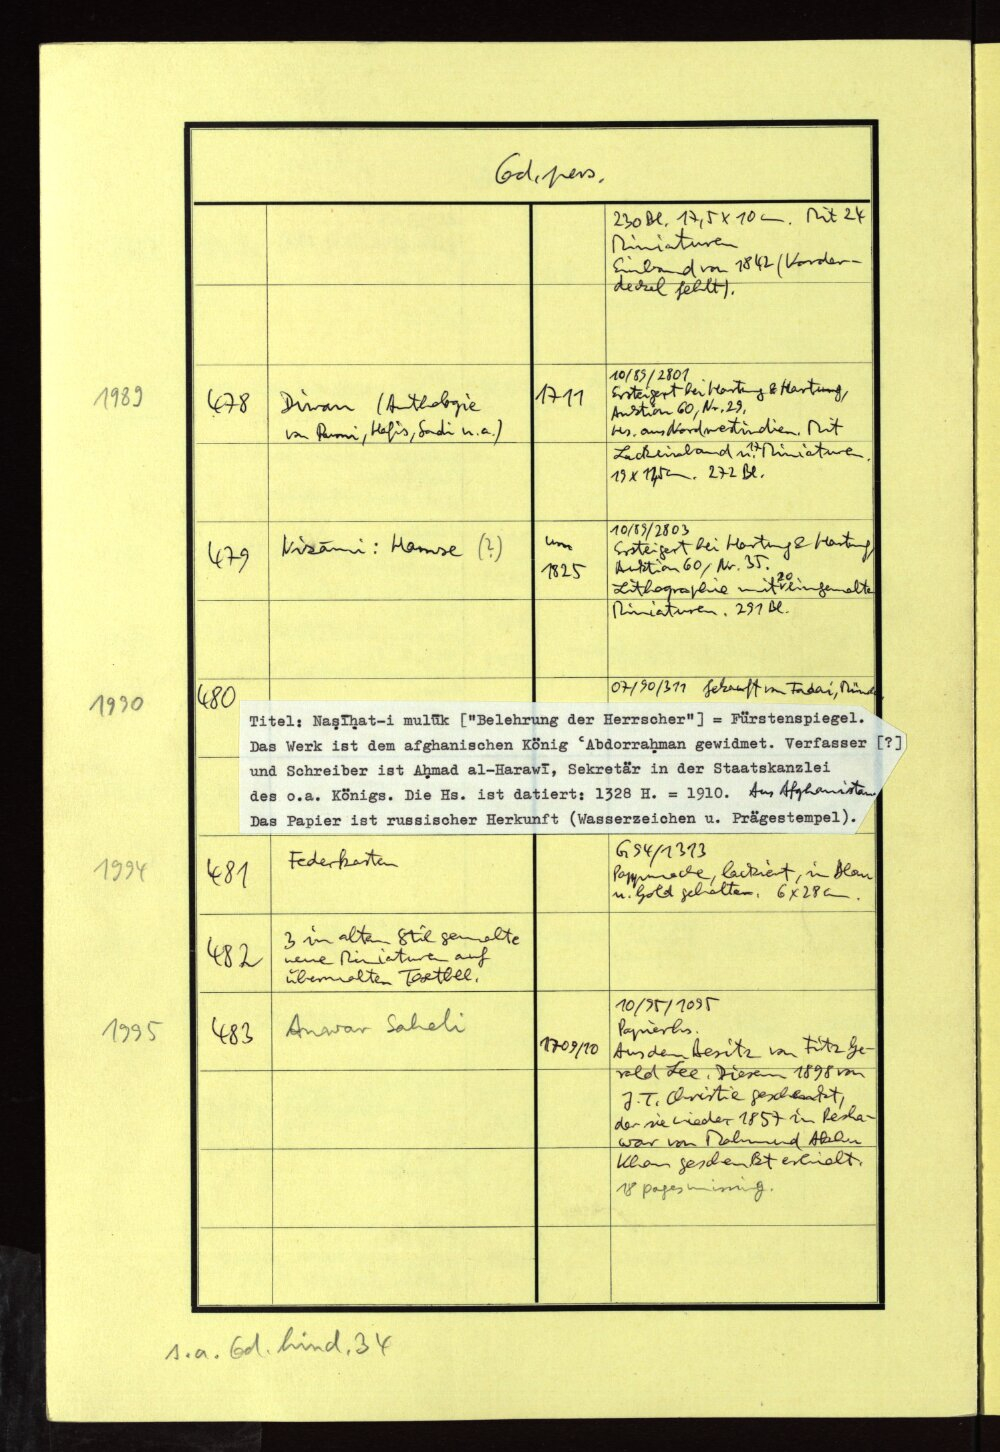 Cd. pers.
230 Bl. 17,5 x 10 cm. Mit 24
Miniaturen
Einband von 1842 (Vorder-
deckel fehlt).
1989
478
Diwan (Anthologie
von Rumi, Hafis, Sadi u.a.)
1711
10/89/2801
Ersteigert bei Hartung & Hartung,
Auktion 60, Nr. 29.
aus Nordwestindien. Mit
Lackeinband u. 17 Miniaturen.
19 x cm. 272 Bl.
479
Nizāmi: Hamse (?)
um
1825
10/89/2803
Ersteigert bei Hartung & Hartung
Auktion 60, Nr. 35.
Lithographie mit 20 eingemalten
Miniaturen. 291 Bl.
1990
480
07/90/311 Gekauft von
Titel: Naṣīḥat-i mulūk ["Belehrung der Herrscher"] = Fürstenspiegel.
Das Werk ist dem afghanischen König ʿAbdorraḥman gewidmet. Verfasser [?]
und Schreiber ist Aḥmad al-Harawī, Sekretär in der Staatskanzlei
des o.a. Königs. Die Hs. ist datiert: 1328 H. = 1910. Aus Afghanistan
Das Papier ist russischer Herkunft (Wasserzeichen u. Prägestempel).
1994
481
Federkasten
G94/1313
Pappmache, lackiert, in Blau
u. Gold gehalten. 6 x 28 cm.
482
3 in altem Stil gemalte
neue Miniaturen auf
übermalten Textbll.
1995
483
Anwar Saheli
1709/10
10/95/1095
Papierhs.
Aus dem Besitz von Fitz Ge-
rald Lee. Diesem 1898 von
J.T. Christie geschenkt,
der sie wieder 1857 in Pesha-
war von Mahmud
Khan geschenkt erhielt.
18 pages missing.
s.a. Cd. hind. 34